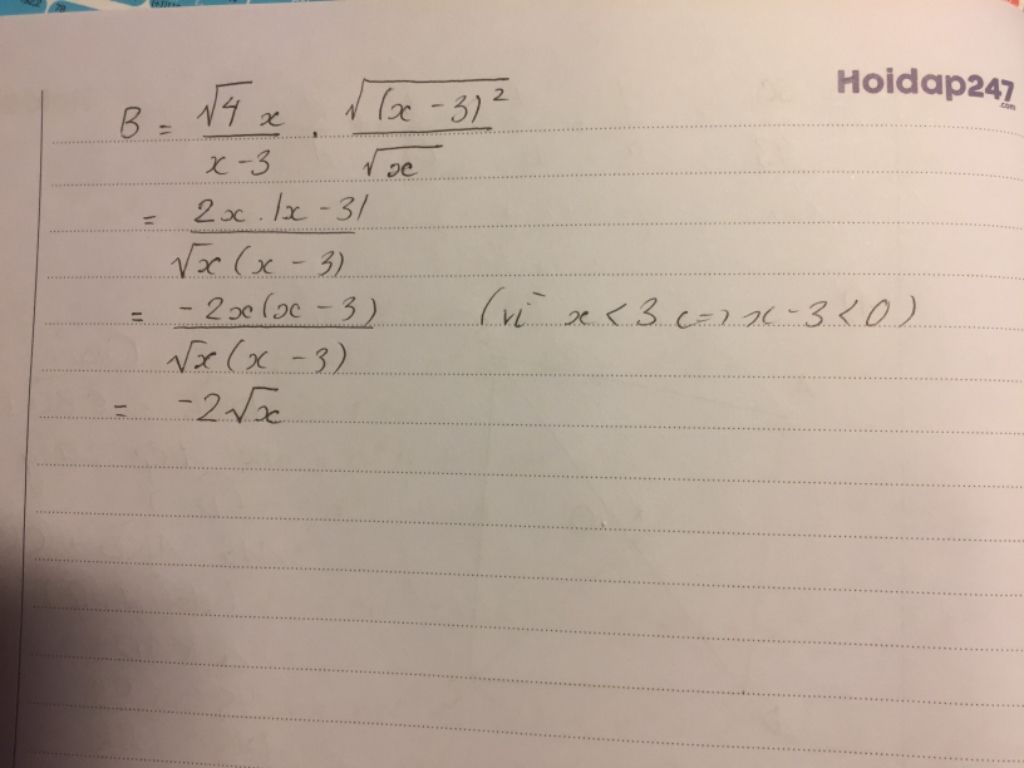 Hoidap247
.com
B = √4 x / x - 3 . √(x - 3)² / √x
= 2x . |x - 3| / √x (x - 3)
= -2x(x - 3) / √x (x - 3) (vì x < 3 <=> x - 3 < 0)
= -2√x